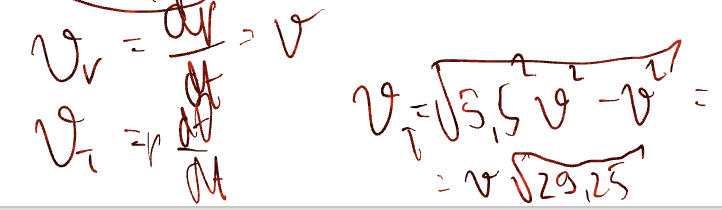 v_r = dr/dt = v
v_τ = r dθ/dt
v_τ = √(5,5² v² − v²) =
= v √29,25